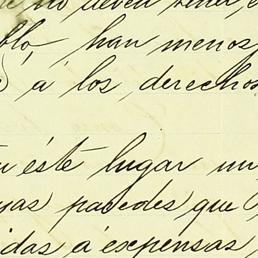 no deben tener, e
blo, han menos
á los derechos
éste lugar un
yas paredes que
idas á expensas